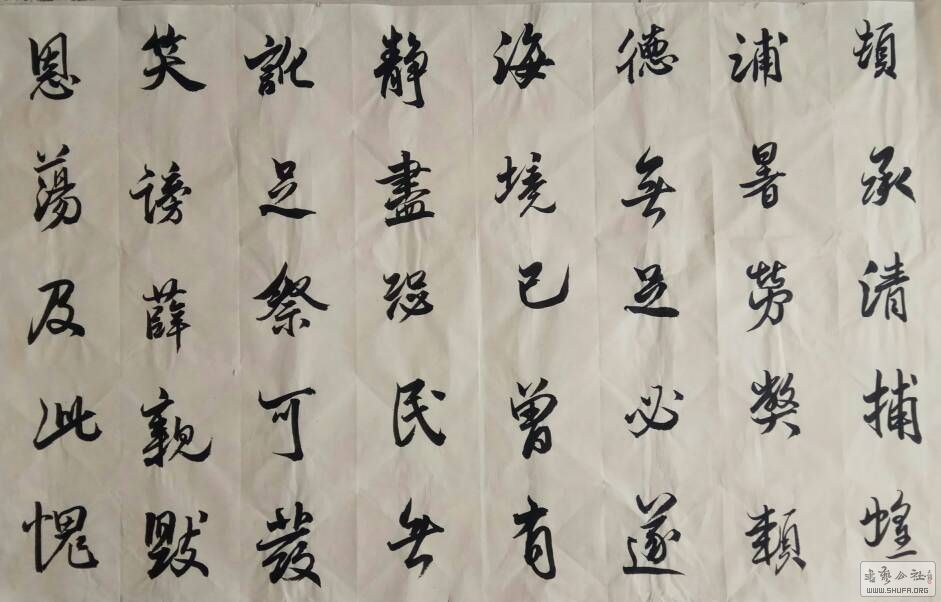 頓承清捕蝗
浦暑勞弊類
德無足必遂
海境已曾有
靜盡民無
訛足祭可發
笑謗薛親毀
恩蕩及此愧
书艺公社
WWW.SHUFA.ORG